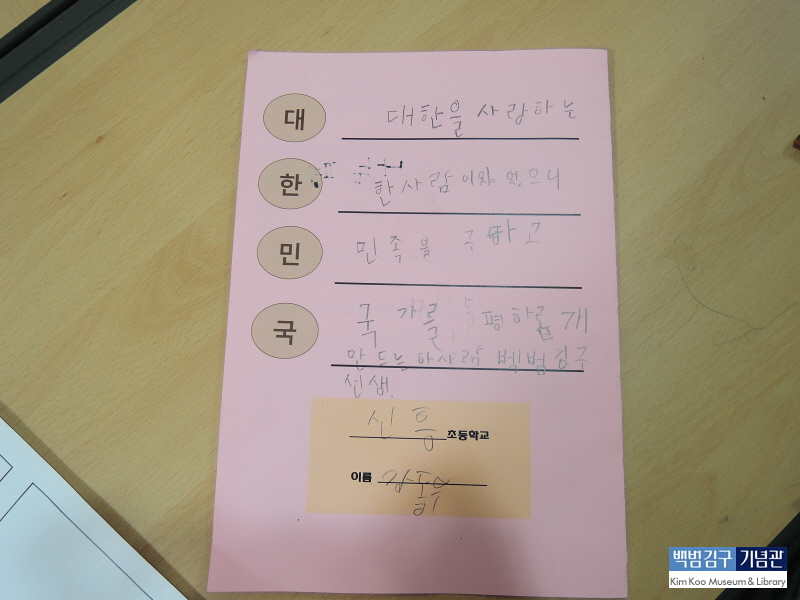 대 대한을 사랑하는
한 한사람이 있었으니
민 민족을 구하고
국 국가를 평화롭게
만드는 한사람 백범김구
선생.
신흥 초등학교
이름
백범김구 기념관
Kim Koo Museum & Library